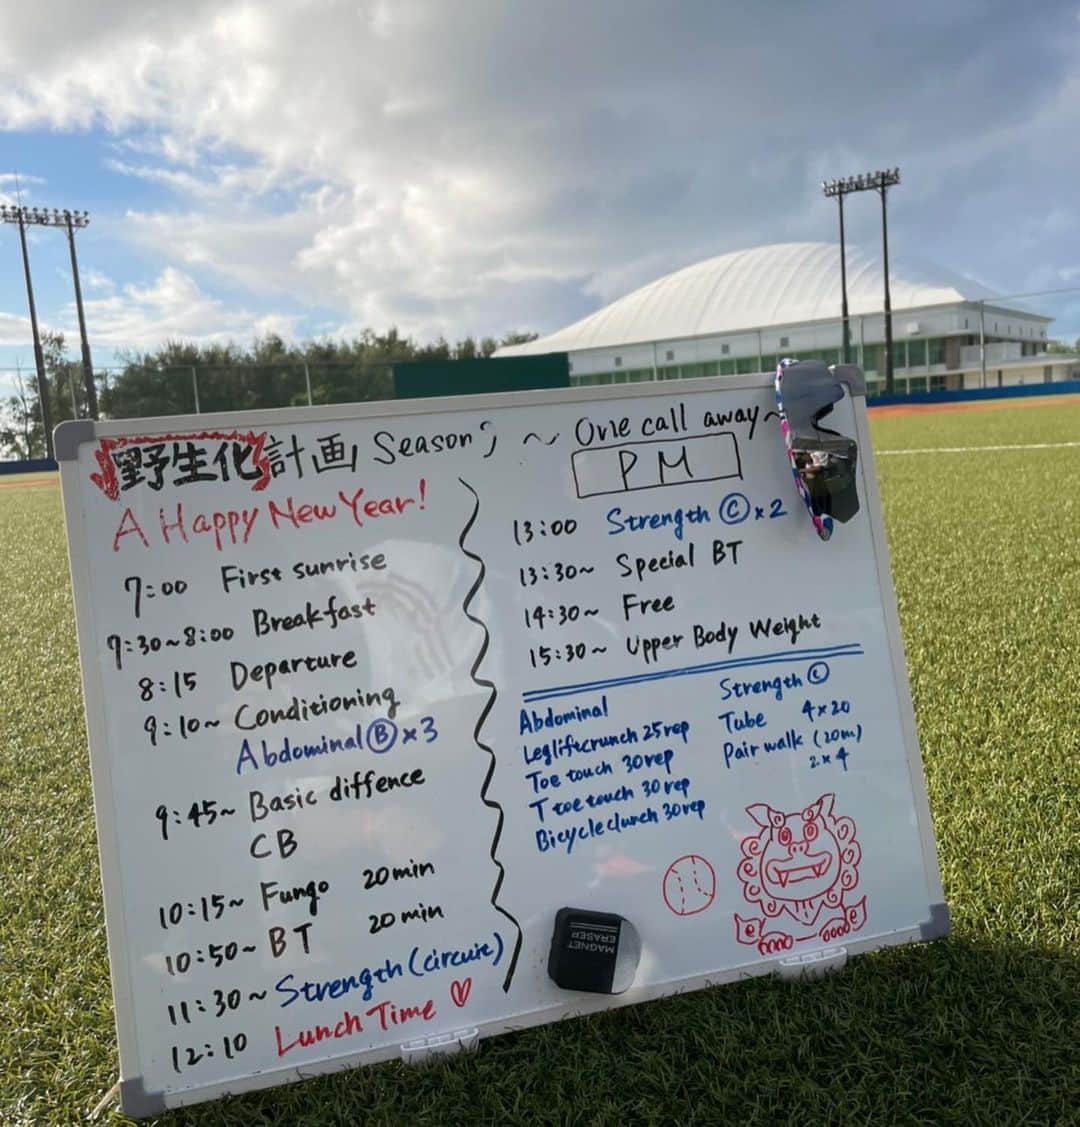 野生化計画 Season 9 ~ One call away~
A Happy New Year!
7:00 First sunrise
7:30~8:00 Breakfast
8:15 Departure
9:10~ Conditioning
Abdominal Ⓑ×3
9:45~ Basic diffence
CB
10:15~ Fungo 20min
10:50~ BT 20min
11:30~ Strength (circuit)
12:10 Lunch Time ♡
PM
13:00 Strength Ⓒ×2
13:30~ Special BT
14:30~ Free
15:30~ Upper Body Weight
Abdominal
Legliftcrunch 25rep
Toe touch 30rep
T toe touch 30rep
Bicycle clunch 30rep
Strength Ⓒ
Tube 4×20
Pair walk (20m)
2×4
MAGNET
ERASER